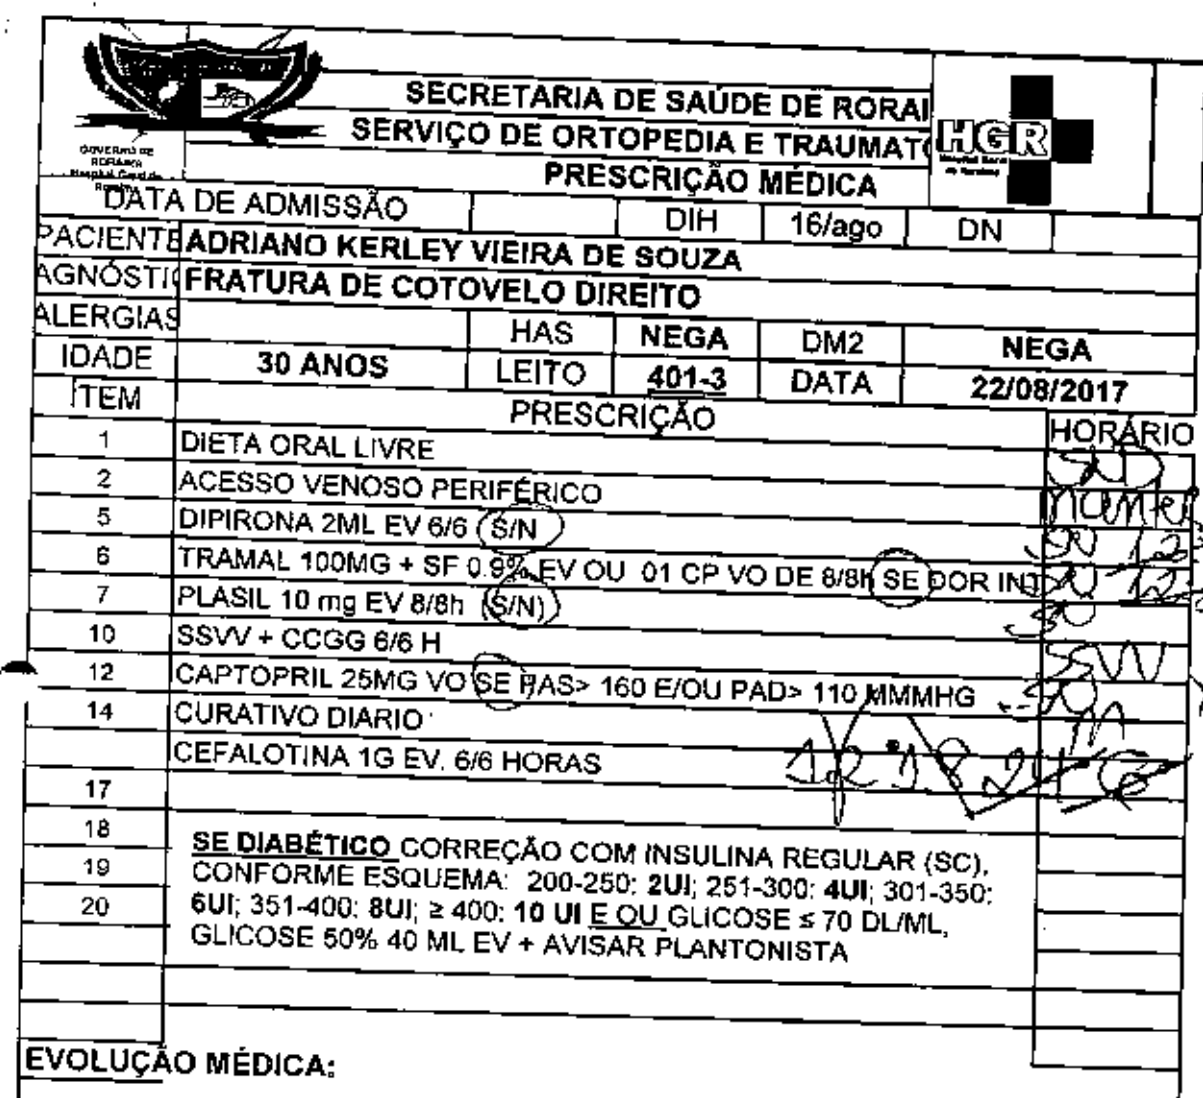 GOVERNO DE
RORAIMA
Hospital Geral de
SECRETARIA DE SAÚDE DE RORAI
SERVIÇO DE ORTOPEDIA E TRAUMATO
PRESCRIÇÃO MÉDICA
HGR
Hospital Geral
de Roraima
DATA DE ADMISSÃO DIH 16/ago DN
PACIENTE ADRIANO KERLEY VIEIRA DE SOUZA
AGNÓSTI FRATURA DE COTOVELO DIREITO
ALERGIAS HAS NEGA DM2 NEGA
IDADE 30 ANOS LEITO 401-3 DATA 22/08/2017
ITEM PRESCRIÇÃO HORÁRIO
1 DIETA ORAL LIVRE SND
2 ACESSO VENOSO PERIFÉRICO
5 DIPIRONA 2ML EV 6/6 (S/N)
6 TRAMAL 100MG + SF 0.9% EV OU 01 CP VO DE 8/8h SE DOR INT
7 PLASIL 10 mg EV 8/8h (S/N)
10 SSVV + CCGG 6/6 H
12 CAPTOPRIL 25MG VO SE PAS> 160 E/OU PAD> 110 MMMHG
14 CURATIVO DIARIO
CEFALOTINA 1G EV. 6/6 HORAS 12 18 24 6
17
18
19
20
SE DIABÉTICO CORREÇÃO COM INSULINA REGULAR (SC),
CONFORME ESQUEMA: 200-250: 2UI; 251-300: 4UI; 301-350:
6UI; 351-400: 8UI; ≥ 400: 10 UI E OU GLICOSE ≤ 70 DL/ML,
GLICOSE 50% 40 ML EV + AVISAR PLANTONISTA
EVOLUÇÃO MÉDICA: